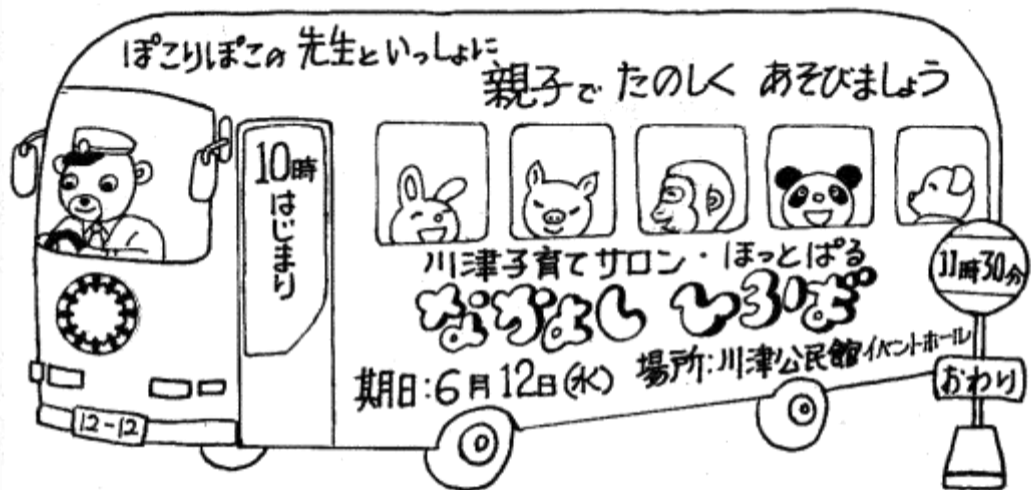 ぽこりぽこの先生といっしょに
親子で たのしく あそびましょう
10時はじまり
川津子育てサロン・ほっとぱる
なかよしひろば
期日:6月12日(水)
場所:川津公民館イベントホール
11時30分
おわり
12-12